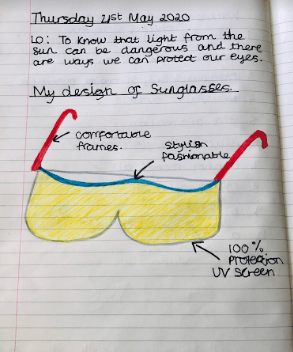 Thursday 21st May 2020
LO: To know that light from the
sun can be dangerous and there
are ways we can protect our eyes.
My design of Sunglasses.
comfortable
frames.
stylish
fashionable
100%
Protection
UV Screen